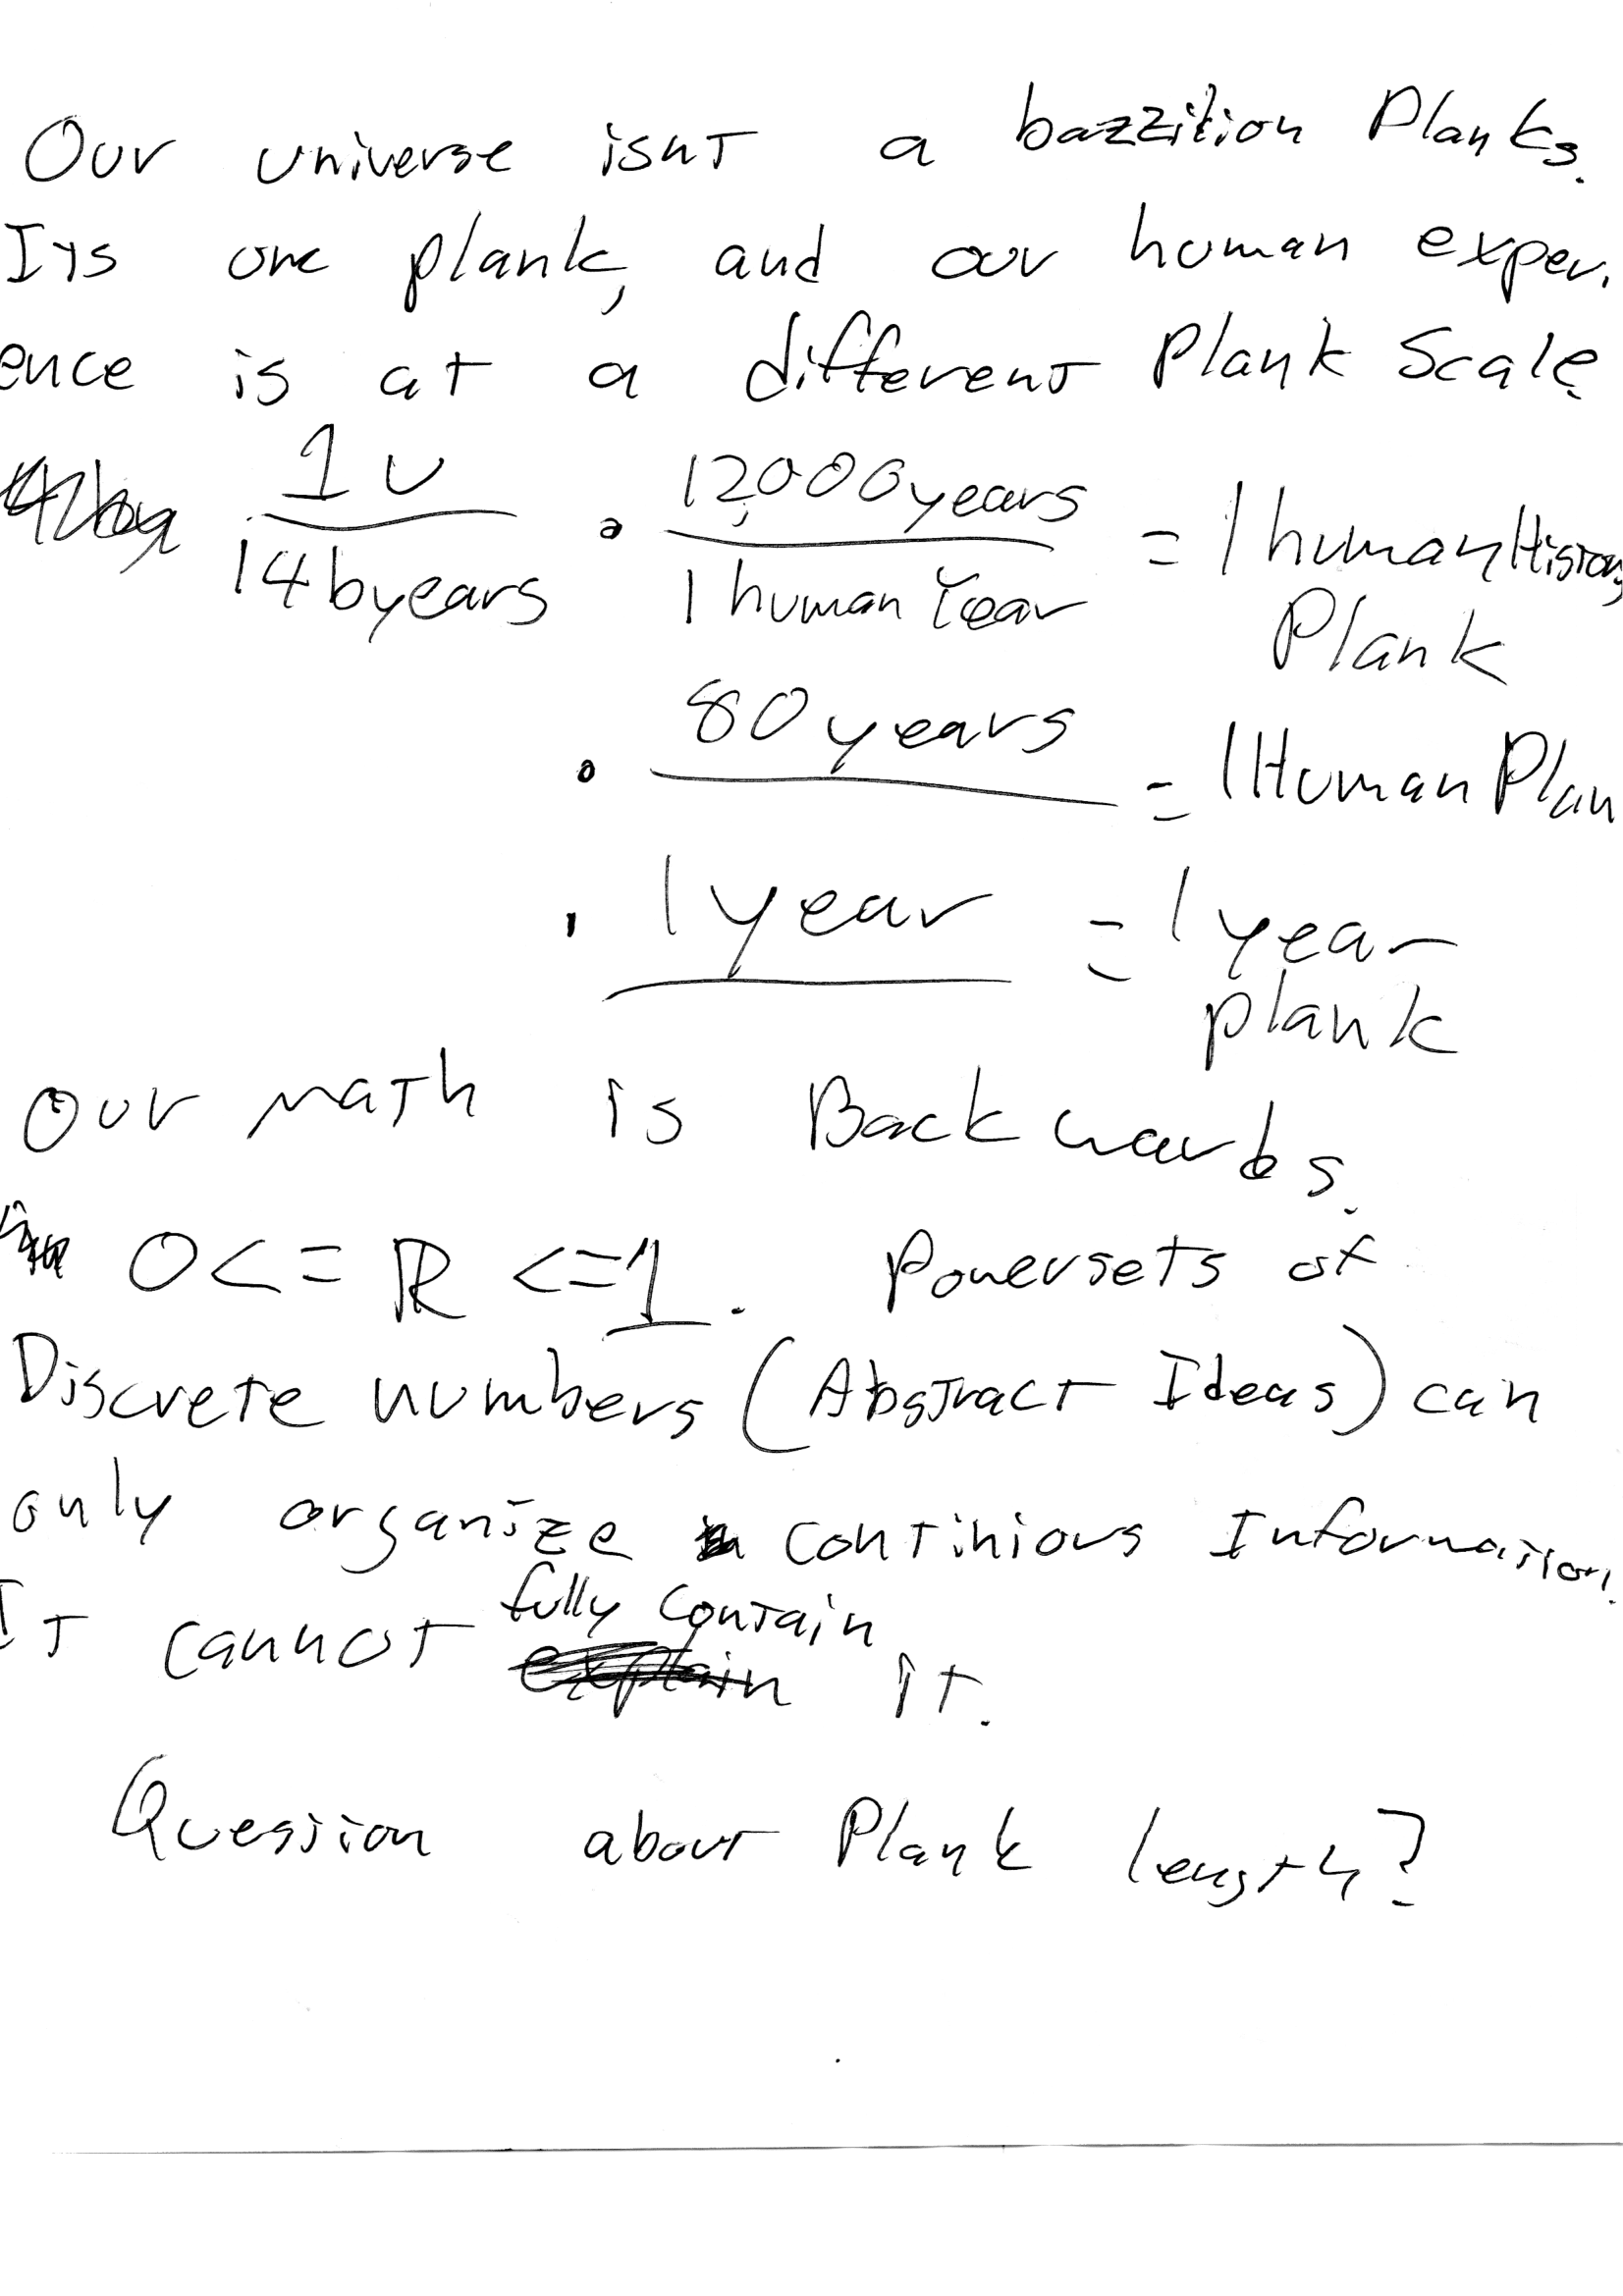 Our universe isnt a bazzilion Planks.
Its one plank, and our human exper.
ence is at a different Plank Scale.
1 U / 14 byears · 12,000 years / 1 human Year = 1 human History
Plank
· 80 years = 1 Human Plan
· 1 year = 1 year
plank
Our math is Backwards.
0 <= ℝ <= 1. Powersets of
Discrete numbers (Abstract Ideas) can
only organize continious Information.
It cannot fully contain it.
Quession about Plank length?